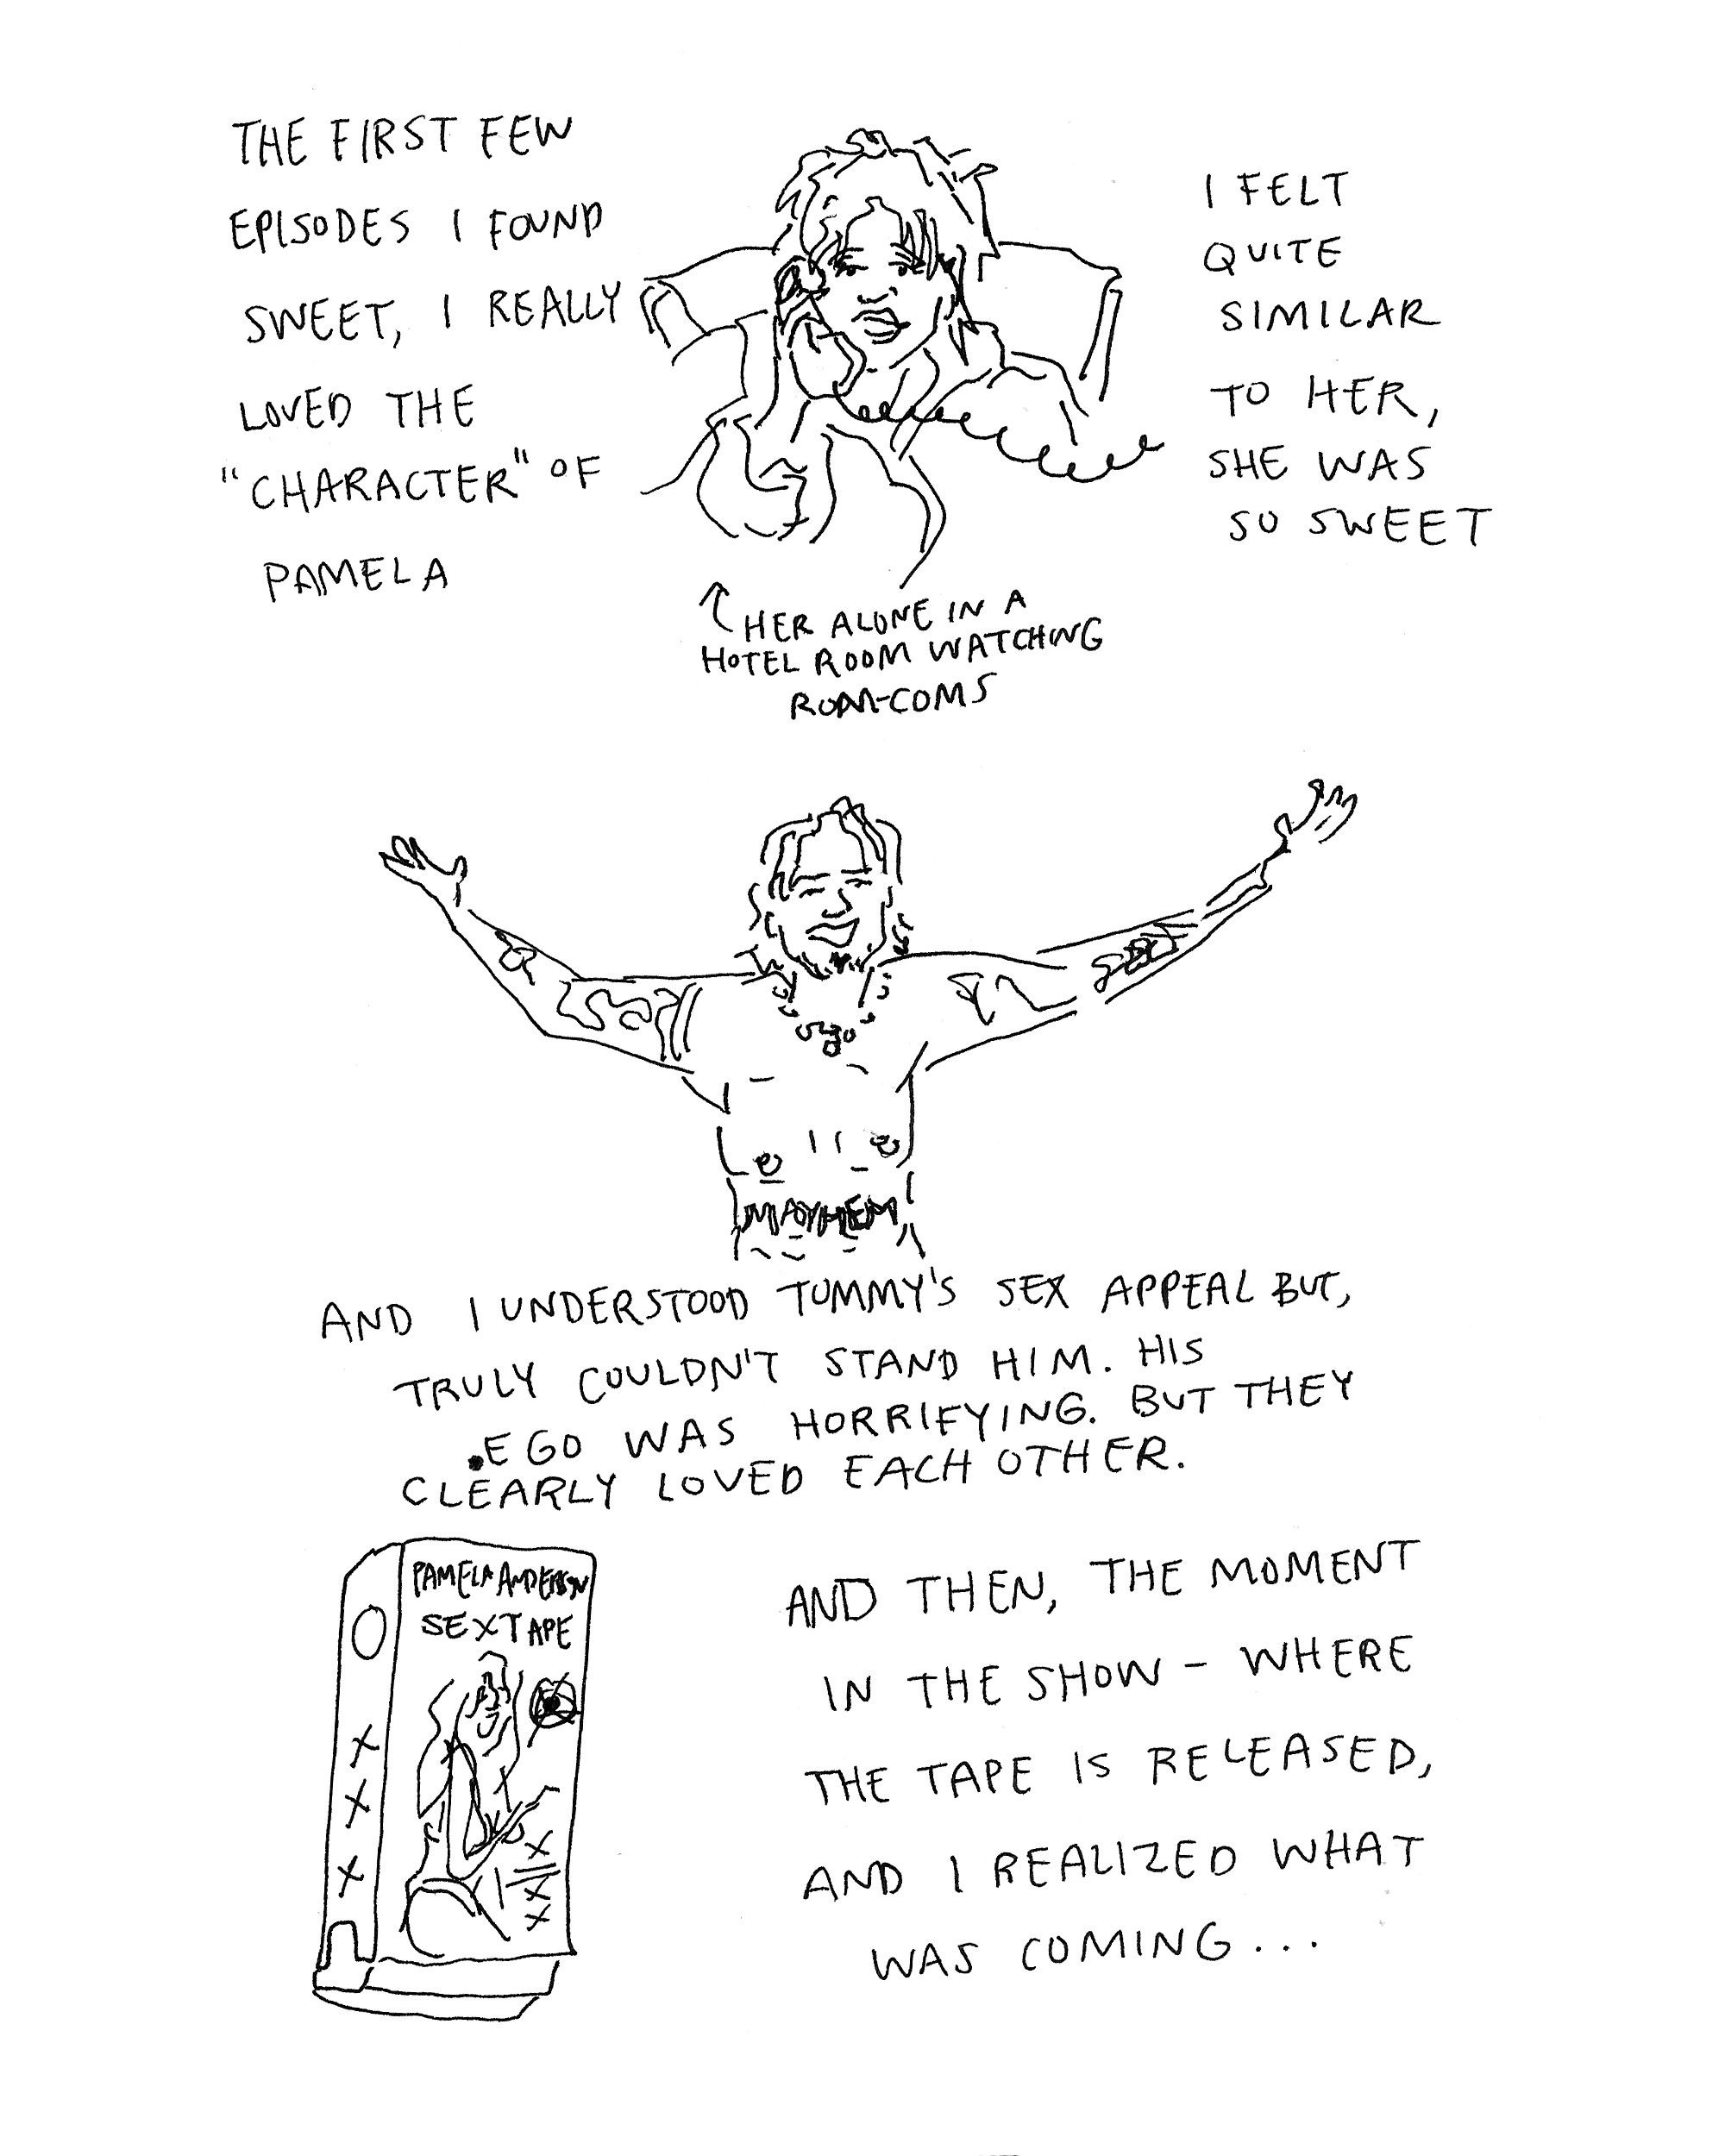 THE FIRST FEW
EPISODES I FOUND
SWEET, I REALLY
LOVED THE
"CHARACTER" OF
PAMELA
I FELT
QUITE
SIMILAR
TO HER,
SHE WAS
SO SWEET
↑ HER ALONE IN A
HOTEL ROOM WATCHING
ROM-COMS
MAYHEM
AND I UNDERSTOOD TOMMY'S SEX APPEAL BUT,
TRULY COULDN'T STAND HIM. HIS
EGO WAS HORRIFYING. BUT THEY
CLEARLY LOVED EACH OTHER.
PAMELA ANDERSON
SEX TAPE
X
X
X
X
X
X
AND THEN, THE MOMENT
IN THE SHOW - WHERE
THE TAPE IS RELEASED,
AND I REALIZED WHAT
WAS COMING...